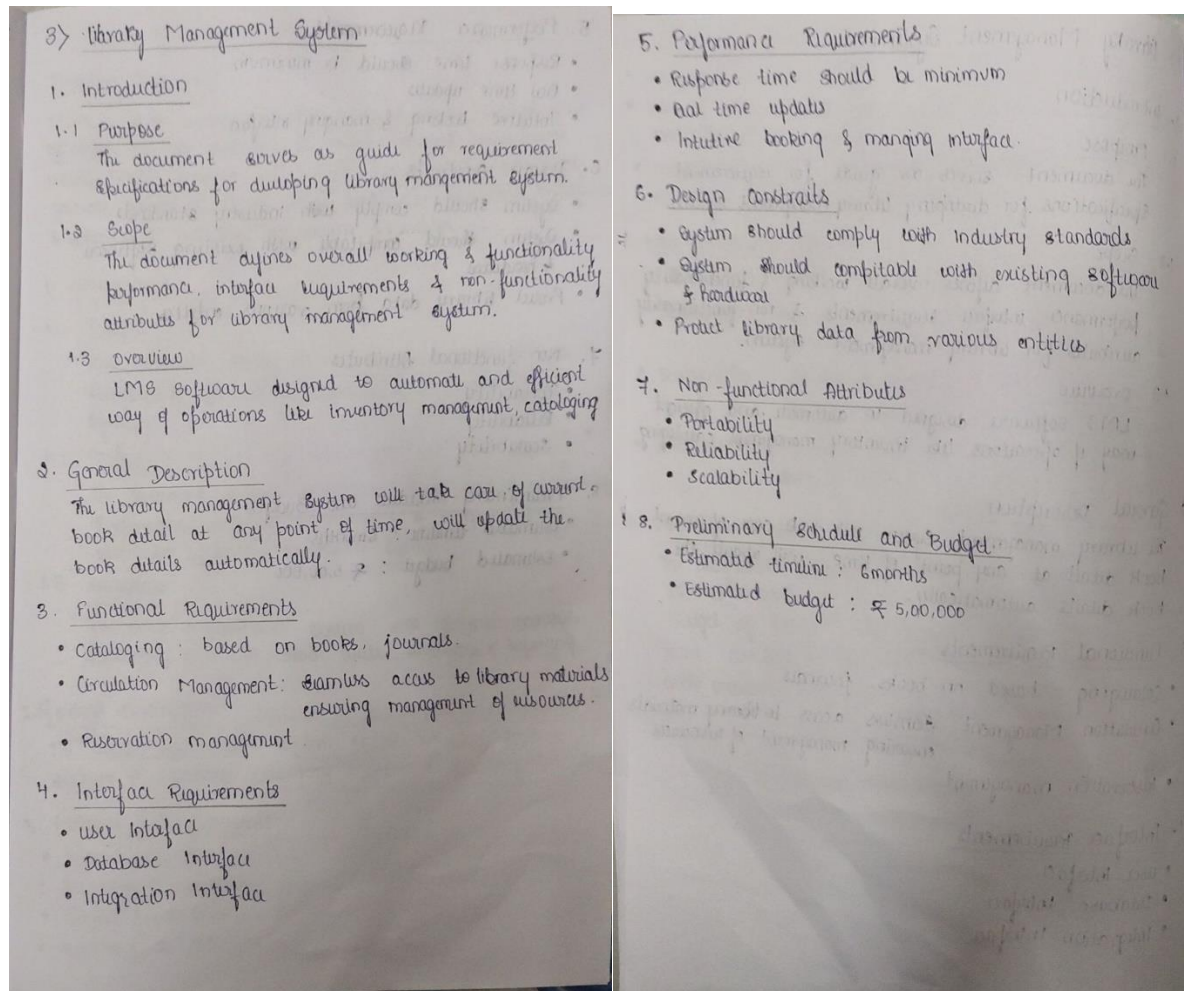 3) library Management System
1. Introduction
1.1 Purpose
The document serves as guide for requirement
specifications for developing library mangement system.
1.2 Scope
The document defines overall working & functionality
performance, interface requirements & non-functionality
attributes for library management system.
1.3 overview
LMS software designed to automate and efficient
way of operations like inventory management, cataloging
2. General Description
The library management system will take care of current
book detail at any point of time, will update the
book details automatically.
3. Functional Requirements
• Cataloging : based on books, journals.
• Circulation Management: seamless access to library materials
ensuring management of resources.
• Reservation management
4. Interface Requirements
• user Interface
• Database Interface
• Integration Interface
5. Performance Requirements
• Response time should be minimum
• Real time updates
• Intutive booking & manging interface.
6. Design constraits
• System should comply with industry standards
• System should compitable with existing software
& hardware
• Protect library data from various entities
7. Non-functional Attributes
• Portability
• Reliability
• Scalability
8. Preliminary schedule and Budget
• Estimated timeline : 6months
• Estimated budget : ₹ 5,00,000